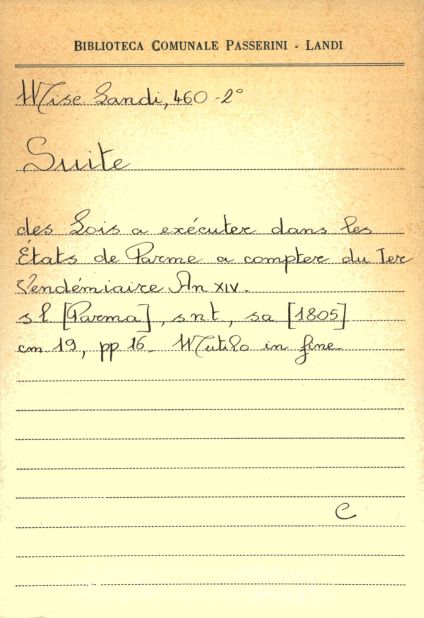 BIBLIOTECA COMUNALE PASSERINI - LANDI
Misc Landi, 460 - 2°
Suite
des Lois a exécuter dans les
États de Parme a compter du 1er
Vendémiaire An XIV.
s l [Parma], s n t, s a [1805]
cm 19, pp 16. Mutilo in fine
C